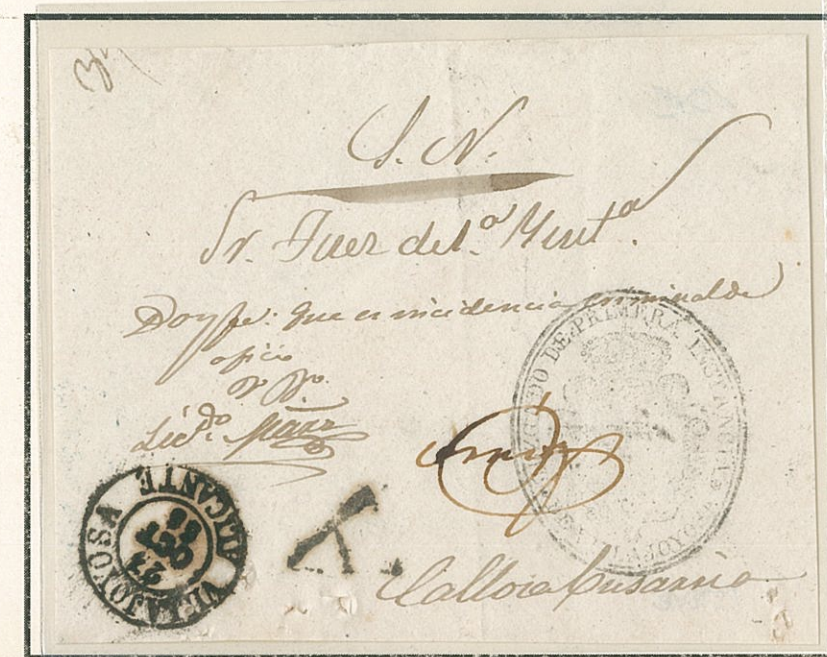 S. N.
Sr. Juez de 1.ª Ynst.ª
Doy fe: que es incidencia criminal de
oficio
Licdo.
JUZGADO DE PRIMERA INSTANCIA
DE VILLAJOYOSA
VILLAJOYOSA
ALICANTE
Callosa Ensarria